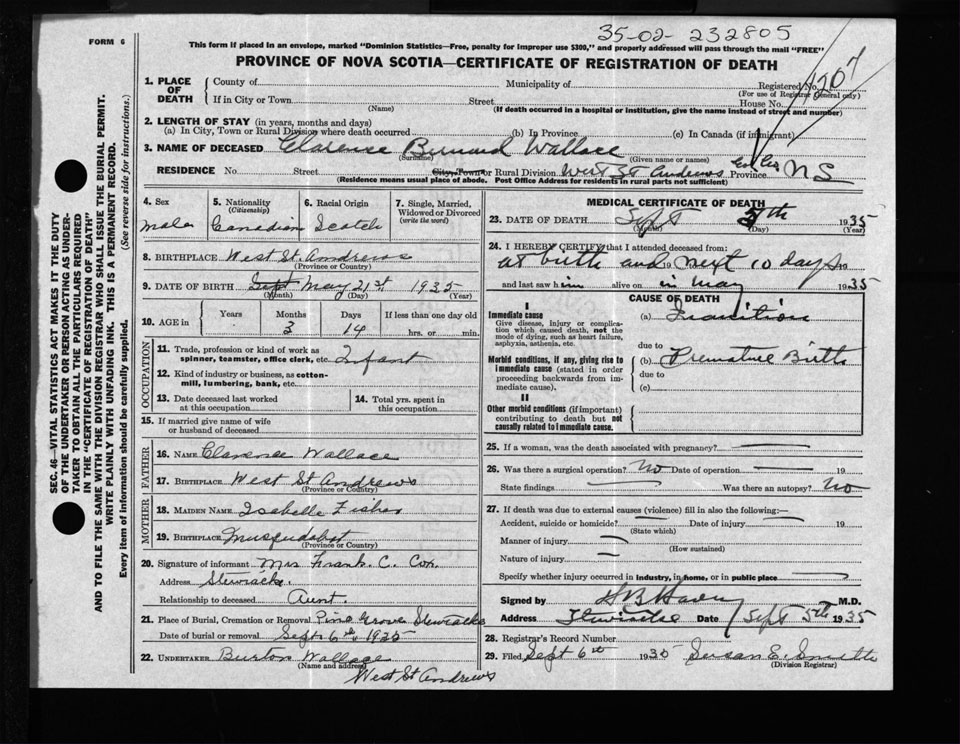 35-02-232805
FORM 6
This form if placed in an envelope, marked "Dominion Statistics—Free, penalty for improper use $300," and properly addressed will pass through the mail "FREE"
PROVINCE OF NOVA SCOTIA—CERTIFICATE OF REGISTRATION OF DEATH
1207
SEC. 46—VITAL STATISTICS ACT MAKES IT THE DUTY
OF THE UNDERTAKER OR PERSON ACTING AS UNDER-
TAKER TO OBTAIN ALL THE PARTICULARS REQUIRED
IN THE "CERTIFICATE OF REGISTRATION OF DEATH"
AND TO FILE THE SAME WITH THE DIVISION REGISTRAR WHO SHALL ISSUE THE BURIAL PERMIT.
WRITE PLAINLY WITH UNFADING INK. THIS IS A PERMANENT RECORD.
Every item of information should be carefully supplied. (See reverse side for instructions.)
1. PLACE OF DEATH
County of Municipality of Registered No.
(For use of Registrar General only)
If in City or Town Street House No.
(Name) (If death occurred in a hospital or institution, give the name instead of street and number)
2. LENGTH OF STAY (in years, months and days)
(a) In City, Town or Rural Division where death occurred (b) In Province (c) In Canada (if immigrant)
3. NAME OF DECEASED Clarence Bernard Wallace
(Surname) (Given name or names)
RESIDENCE No. Street City, Town or Rural Division West St Andrews Province NS
(Residence means usual place of abode. Post Office Address for residents in rural parts not sufficient)
4. Sex
male
5. Nationality
(Citizenship)
Canadian
6. Racial Origin
Scotch
7. Single, Married,
Widowed or Divorced
(write the word)
8. BIRTHPLACE West St. Andrews
(Province or Country)
9. DATE OF BIRTH Sept May 21st 1935
(Month) (Day) (Year)
10. AGE in
Years Months Days If less than one day old
3 14 hrs. or min.
OCCUPATION
11. Trade, profession or kind of work as
spinner, teamster, office clerk, etc. Infant
12. Kind of industry or business, as cotton-
mill, lumbering, bank, etc.
13. Date deceased last worked
at this occupation
14. Total yrs. spent in
this occupation
15. If married give name of wife
or husband of deceased
FATHER
16. NAME Clarence Wallace
17. BIRTHPLACE West St Andrews
(Province or Country)
MOTHER
18. MAIDEN NAME Isabelle Fisher
19. BIRTHPLACE Musquodoboit
(Province or Country)
20. Signature of informant Mrs Frank C. Cox.
Address Stewiacke.
Relationship to deceased Aunt.
21. Place of Burial, Cremation or Removal Pine Grove Stewiacke
Date of burial or removal Sept 6th 1935
22. UNDERTAKER Burton Wallace
(Name and address)
West St Andrews
MEDICAL CERTIFICATE OF DEATH
23. DATE OF DEATH Sept 5th 1935
(Month) (Day) (Year)
24. I HEREBY CERTIFY that I attended deceased from:
at birth and 19 next 10 days 19
and last saw him alive on in May 1935
CAUSE OF DEATH
I
Immediate cause
Give disease, injury or complica-
tion which caused death, not the
mode of dying, such as heart failure,
asphyxia, asthenia, etc.
(a) Inanition
due to
Morbid conditions, if any, giving rise to
immediate cause (stated in order
proceeding backwards from im-
mediate cause).
(b) Premature Birth
due to
(c)
II
Other morbid conditions (if important)
contributing to death but not
causally related to immediate cause.
25. If a woman, was the death associated with pregnancy?
26. Was there a surgical operation? No Date of operation 19
State findings Was there an autopsy? No
27. If death was due to external causes (violence) fill in also the following:—
Accident, suicide or homicide? Date of injury 19
(State which)
Manner of injury
(How sustained)
Nature of injury
Specify whether injury occurred in industry, in home, or in public place
Signed by M.D.
Address Stewiacke Date Sept 5th 1935
28. Registrar's Record Number
29. Filed Sept 6th 1935 Susan E. Smith
(Division Registrar)